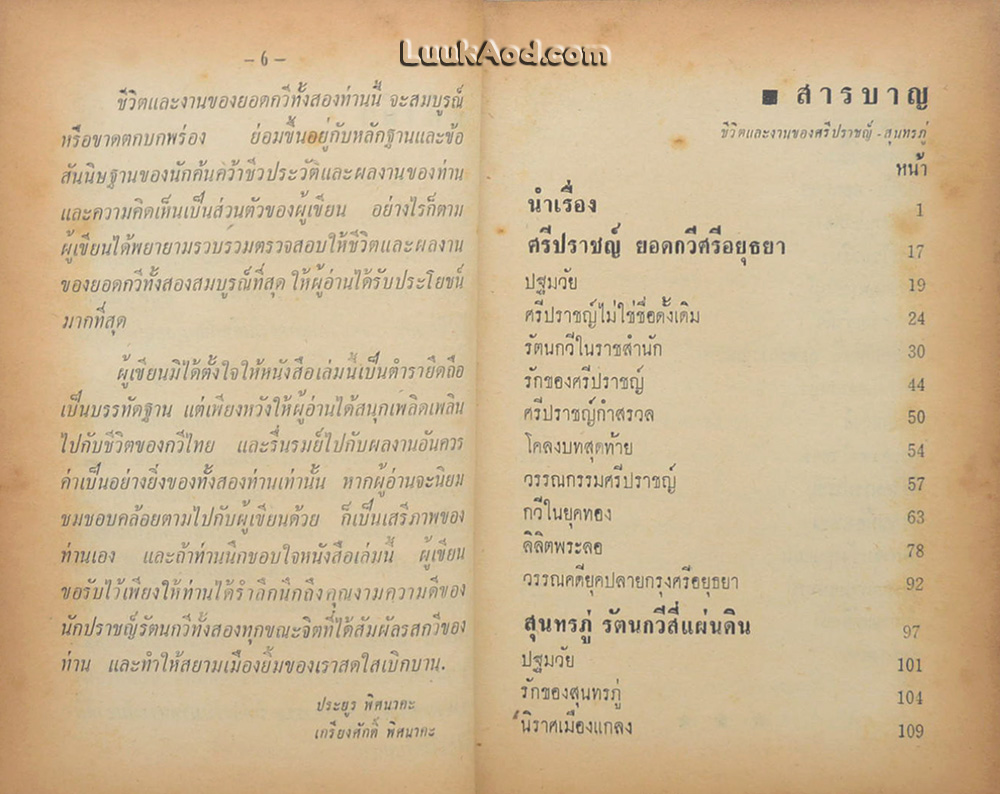 LuukAod.com
– 6 –
ชีวิตและงานของยอดกวีทั้งสองท่านนี้ จะสมบูรณ์
หรือขาดตกบกพร่อง ย่อมขึ้นอยู่กับหลักฐานและข้อ
สันนิษฐานของนักค้นคว้าชีวประวัติและผลงานของท่าน
และความคิดเห็นเป็นส่วนตัวของผู้เขียน อย่างไรก็ตาม
ผู้เขียนได้พยายามรวบรวมตรวจสอบให้ชีวิตและผลงาน
ของยอดกวีทั้งสองสมบูรณ์ที่สุด ให้ผู้อ่านได้รับประโยชน์
มากที่สุด
ผู้เขียนมิได้ตั้งใจให้หนังสือเล่มนี้เป็นตำรายึดถือ
เป็นบรรทัดฐาน แต่เพียงหวังให้ผู้อ่านได้สนุกเพลิดเพลิน
ไปกับชีวิตของกวีไทย และรื่นรมย์ไปกับผลงานอันควร
ค่าเป็นอย่างยิ่งของทั้งสองท่านเท่านั้น หากผู้อ่านจะนิยม
ชมชอบคล้อยตามไปกับผู้เขียนด้วย ก็เป็นเสรีภาพของ
ท่านเอง และถ้าท่านนึกชอบใจหนังสือเล่มนี้ ผู้เขียน
ขอรับไว้เพียงให้ท่านได้รำลึกนึกถึงคุณงามความดีของ
นักปราชญ์รัตนกวีทั้งสองทุกขณะจิตที่ได้สัมผัสรสกวีของ
ท่าน และทำให้สยามเมืองยิ้มของเราสดใสเบิกบาน.
ประยูร พิศนาคะ
เกรียงศักดิ์ พิศนาคะ
■ สารบาญ
ชีวิตและงานของศรีปราชญ์ - สุนทรภู่
หน้า
นำเรื่อง 1
ศรีปราชญ์ ยอดกวีศรีอยุธยา 17
ปฐมวัย 19
ศรีปราชญ์ไม่ใช่ชื่อดั้งเดิม 24
รัตนกวีในราชสำนัก 30
รักของศรีปราชญ์ 44
ศรีปราชญ์กำสรวล 50
โคลงบทสุดท้าย 54
วรรณกรรมศรีปราชญ์ 57
กวีในยุคทอง 63
ลิลิตพระลอ 78
วรรณคดียุคปลายกรุงศรีอยุธยา 92
สุนทรภู่ รัตนกวีสี่แผ่นดิน 97
ปฐมวัย 101
รักของสุนทรภู่ 104
นิราศเมืองแกลง 109